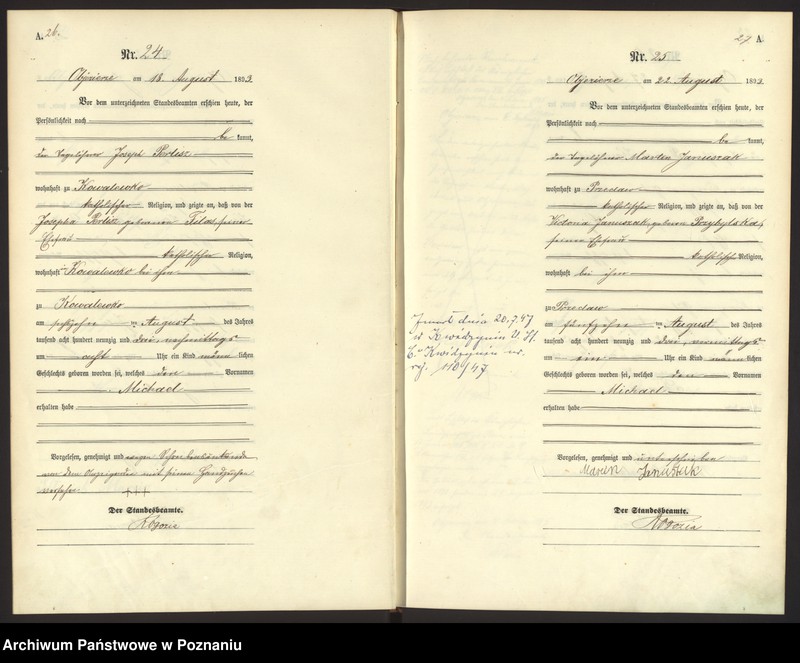 A. 26.
Nr. 24
Objezierze am 18. August 1893
Vor dem unterzeichneten Standesbeamten erschien heute, der
Persönlichkeit nach
be kannt,
der Tagelöhner Joseph
wohnhaft zu Kowalewko
katholischer Religion, und zeigte an, daß von der
Josepha geborenen seiner
Ehefrau
katholischer Religion,
wohnhaft Kowalewko bei ihm
zu Kowalewko
am sechszehn ten August des Jahres
tausend acht hundert neunzig und drei nachmittags
um acht Uhr ein Kind männ lichen
Geschlechts geboren worden sei, welches den Vornamen
Michael
erhalten habe
Vorgelesen, genehmigt und wegen Schreibensunkunde
von dem Anzeigenden mit seinem Handzeichen
versehen. +++
Der Standesbeamte.
27 A.
Nr. 25
Objezierze am 22. August 1893
Vor dem unterzeichneten Standesbeamten erschien heute, der
Persönlichkeit nach
be kannt,
der Tagelöhner Martin Januszak
wohnhaft zu
katholischer Religion, und zeigte an, daß von der
Victoria Januszak, geborene Przybylska,
seiner Ehefrau
katholischer Religion,
wohnhaft bei ihm
zu
am fünfzehn ten August des Jahres
tausend acht hundert neunzig und drei vormittags
um ein Uhr ein Kind männ lichen
Geschlechts geboren worden sei, welches den Vornamen
Michael
erhalten habe
Vorgelesen, genehmigt und unterschrieben
Marcin Januszak
Der Standesbeamte.
Zmarł dnia 20.7.47
w Kwidzynie U. St.
C. Kwidzynie nr.
rej. 110/47
Archiwum Państwowe w Poznaniu